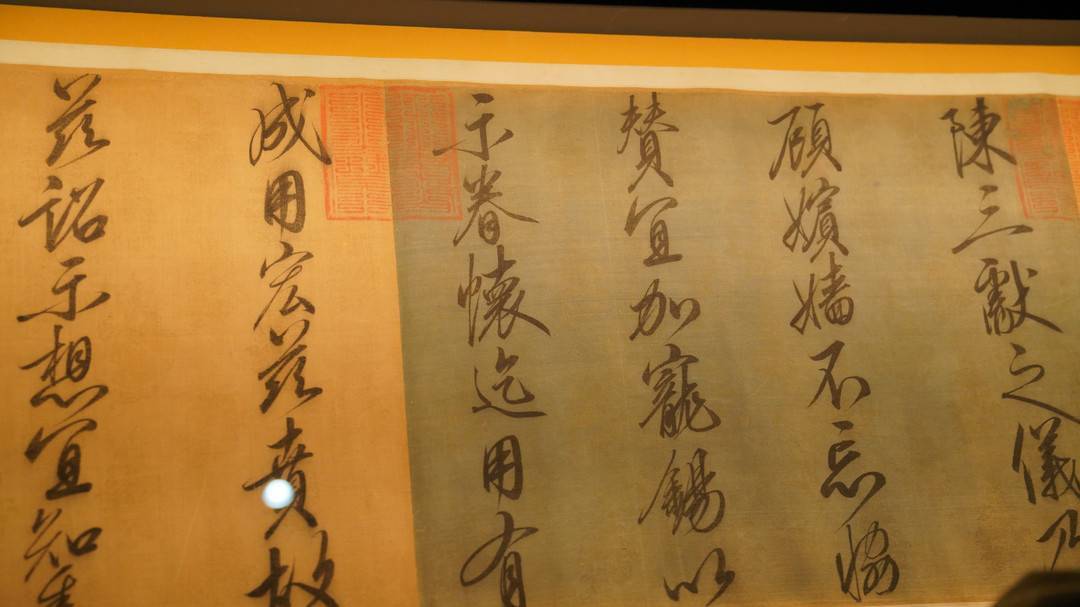 陳三獻之儀乃
顧嬪嬙不忘協
贊宜加寵錫以
示眷懷迄用有
成用宏茲賁故
茲詔示想宜知